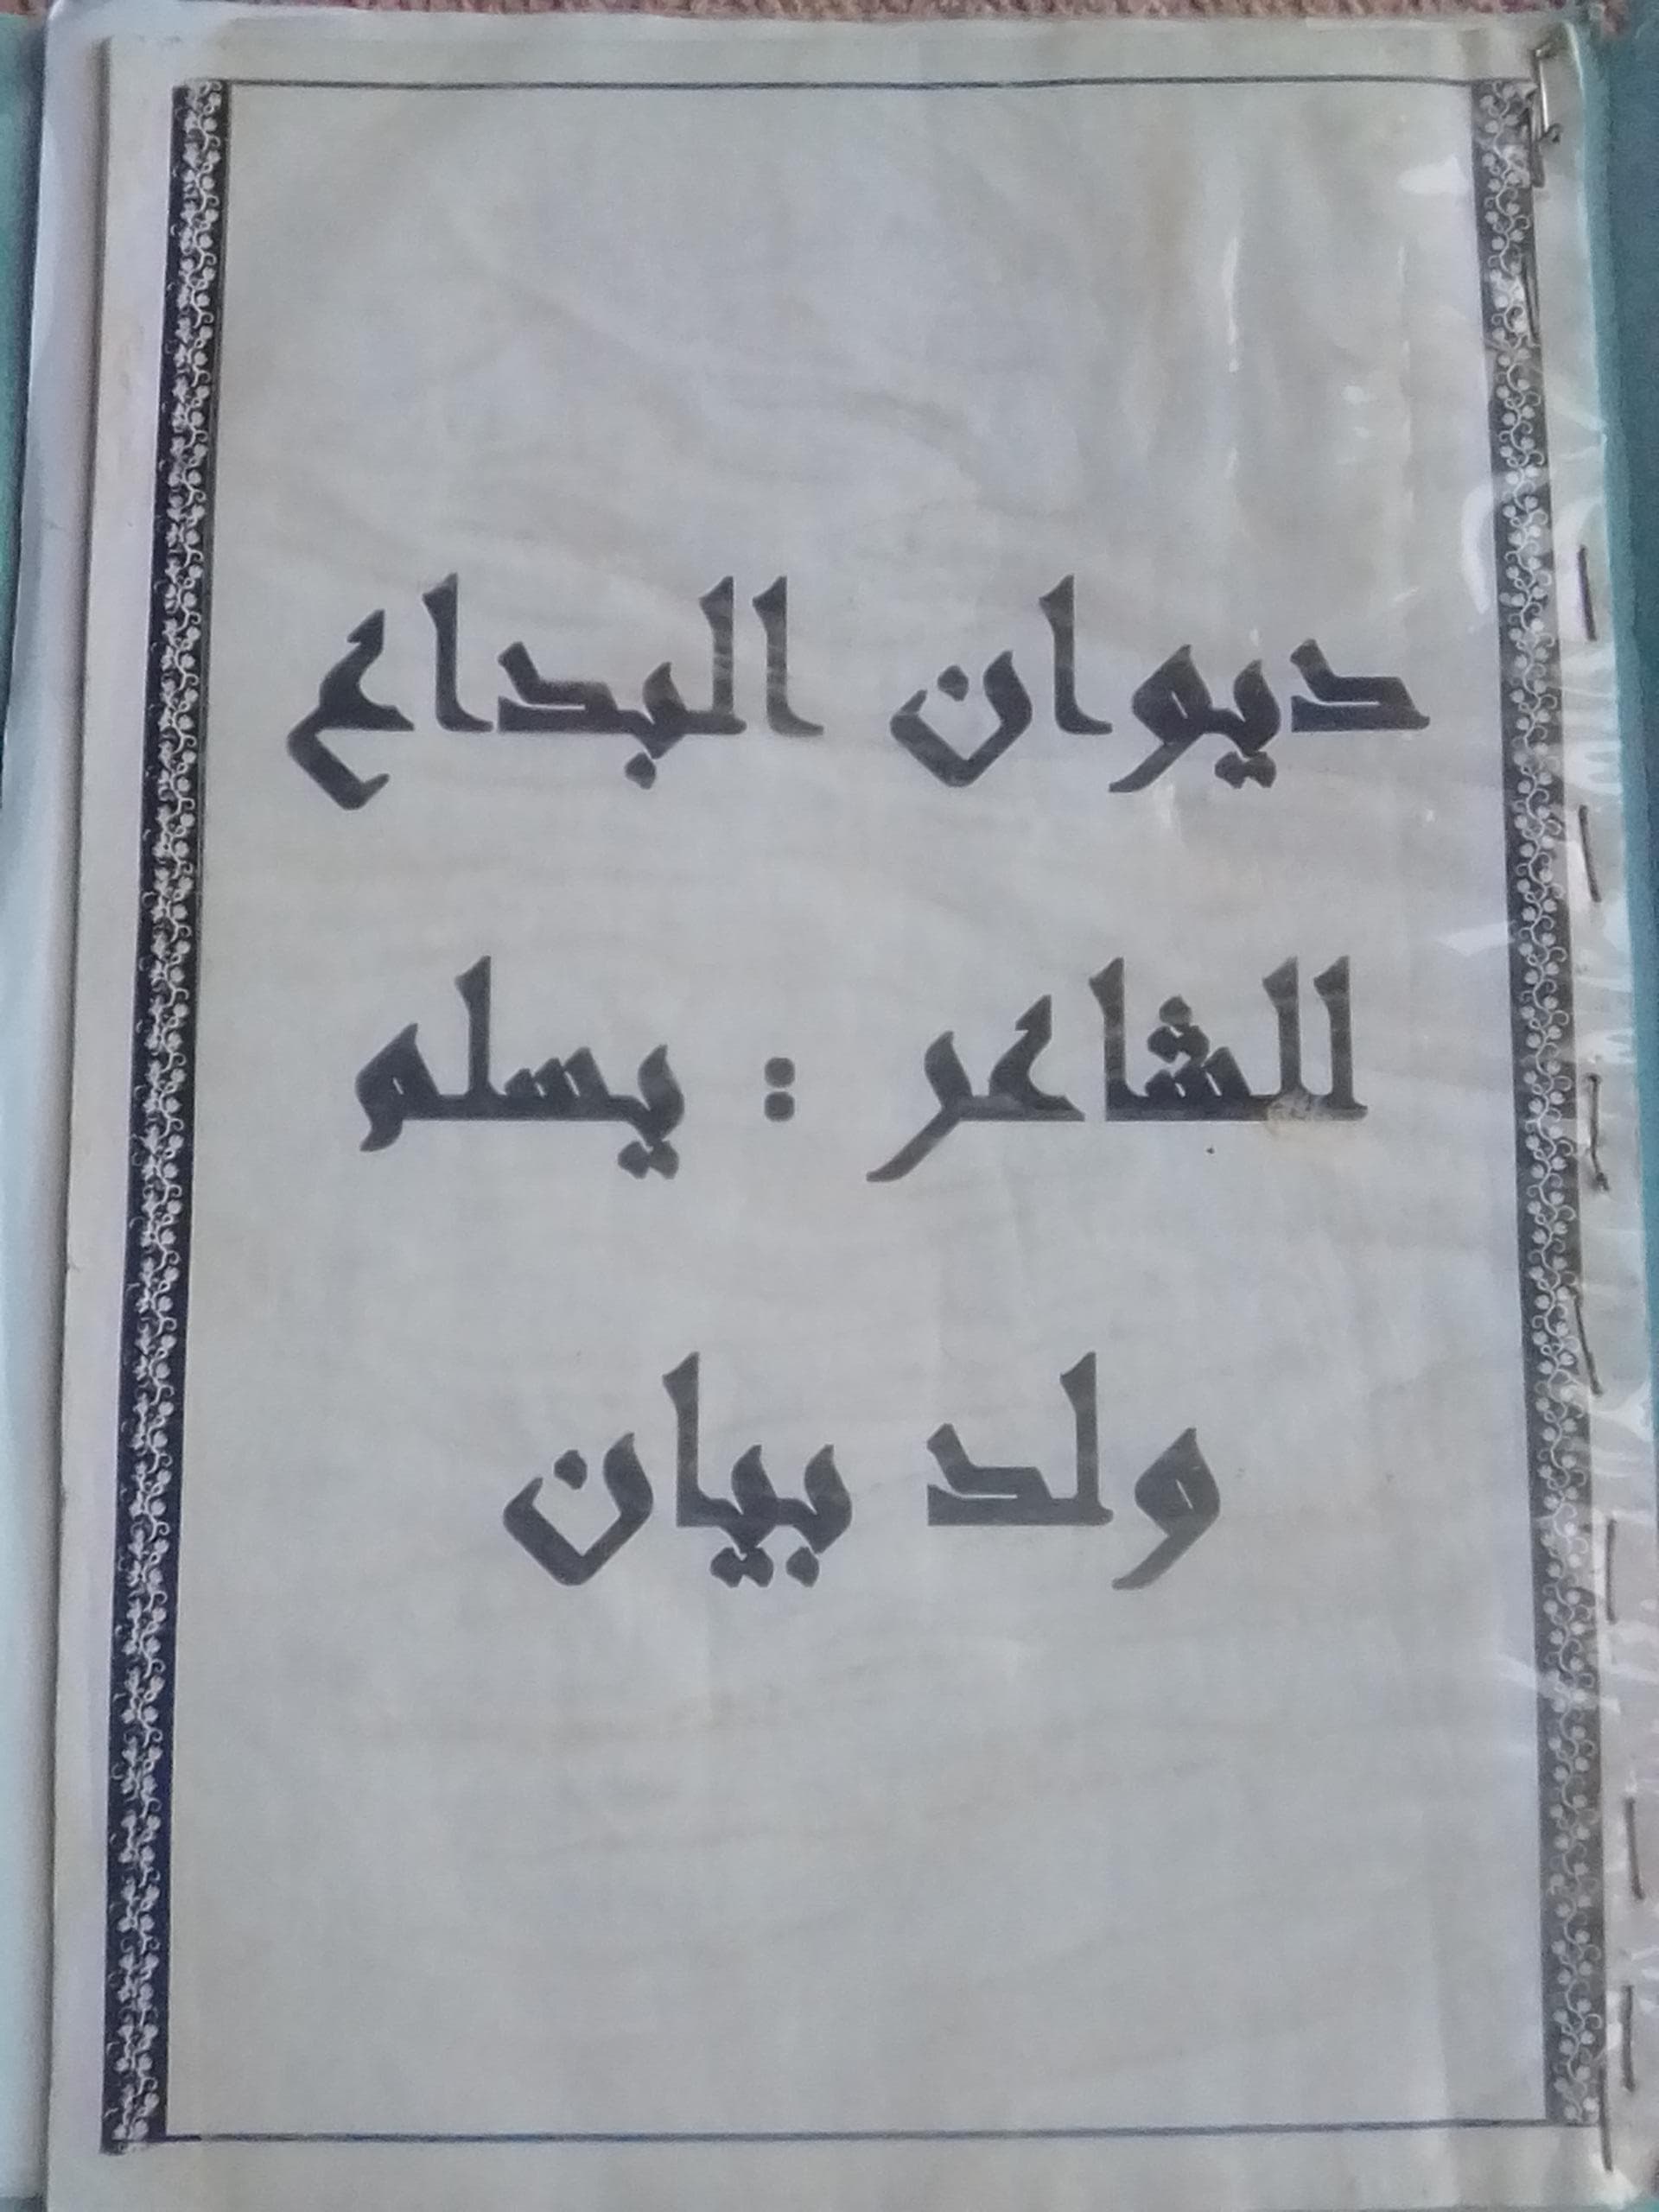 ديوان البداع
للشاعر : يسلم
ولد بيان